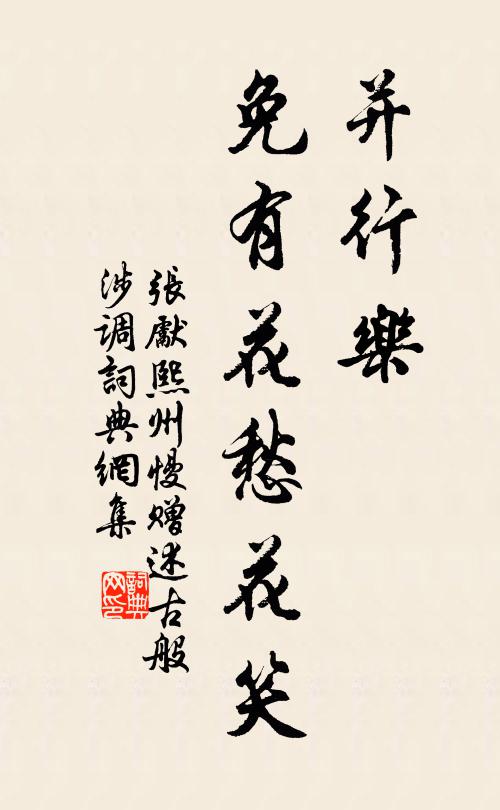 并行樂
免有花愁花笑
張獻熙州慢贈述古般
涉调詞典網集
詞典
网印